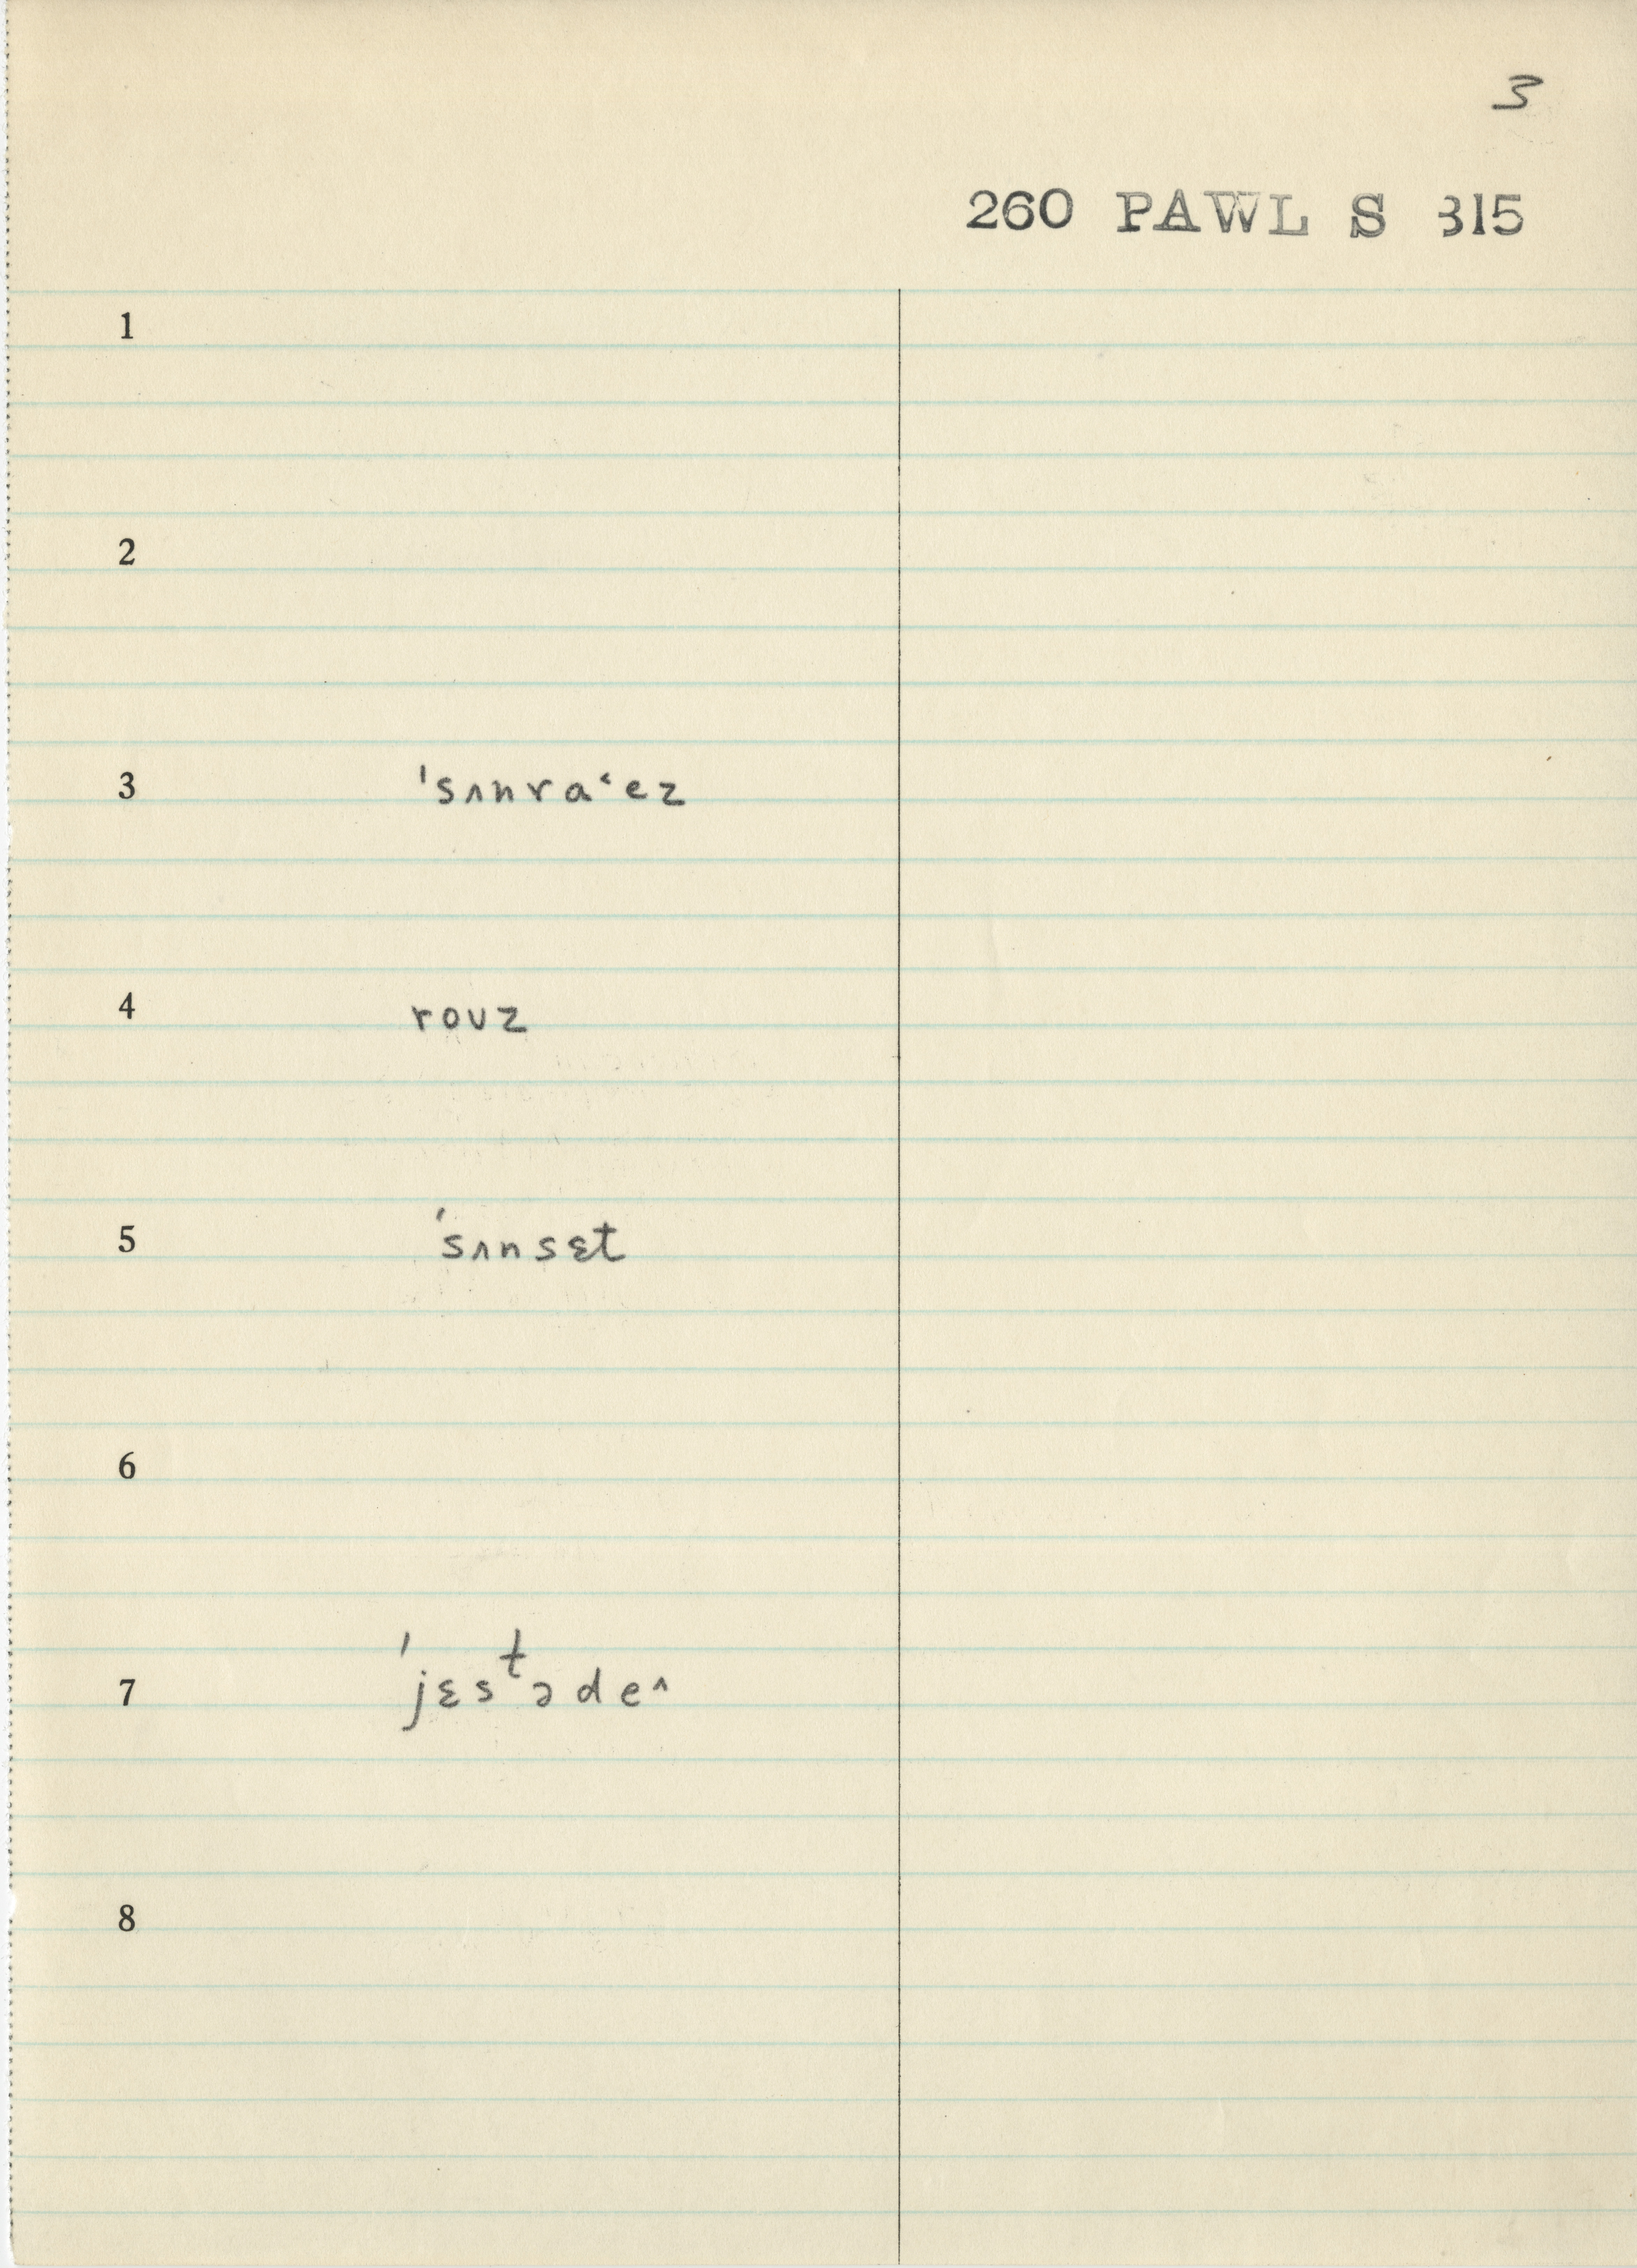 3
260 PAWL S 315
1
2
3 ˈsʌnra˂ez
4 roʊz
5 ˈsʌnsɛt
6
7 ˈjɛsᵗəde^
8